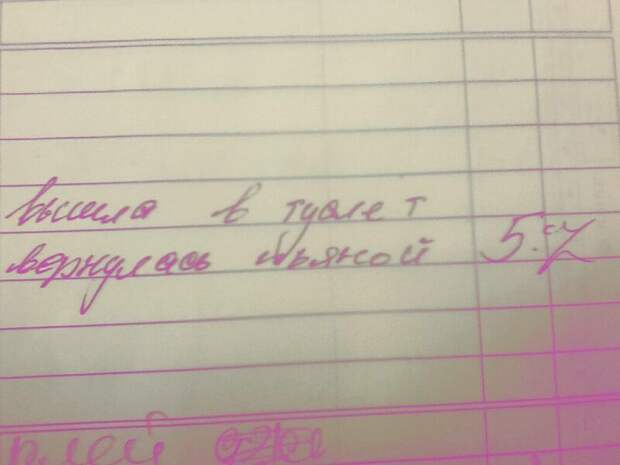 вышла в туалет
вернулась пьяной 5.
клей